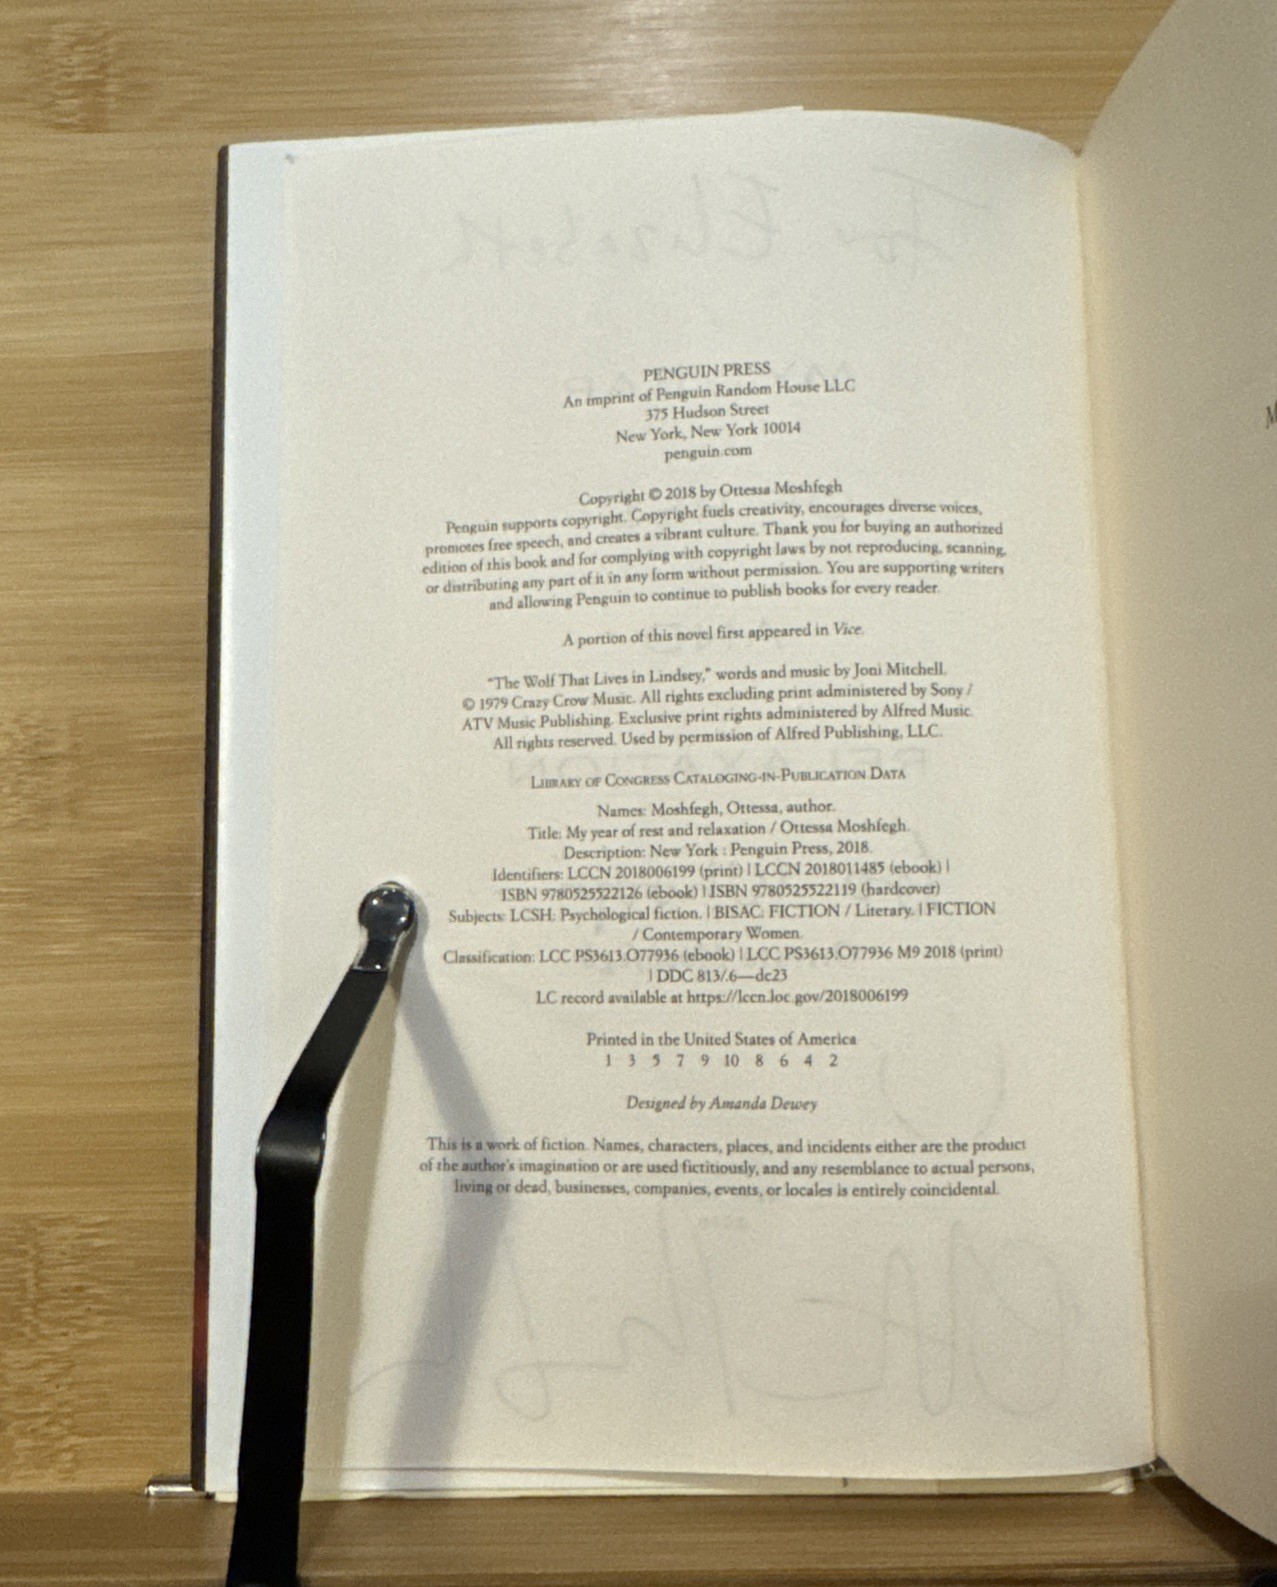 PENGUIN PRESS
An imprint of Penguin Random House LLC
375 Hudson Street
New York, New York 10014
penguin.com
Copyright © 2018 by Ottessa Moshfegh
Penguin supports copyright. Copyright fuels creativity, encourages diverse voices,
promotes free speech, and creates a vibrant culture. Thank you for buying an authorized
edition of this book and for complying with copyright laws by not reproducing, scanning,
or distributing any part of it in any form without permission. You are supporting writers
and allowing Penguin to continue to publish books for every reader.
A portion of this novel first appeared in Vice.
“The Wolf That Lives in Lindsey,” words and music by Joni Mitchell.
© 1979 Crazy Crow Music. All rights excluding print administered by Sony /
ATV Music Publishing. Exclusive print rights administered by Alfred Music.
All rights reserved. Used by permission of Alfred Publishing, LLC.
Library of Congress Cataloging-in-Publication Data
Names: Moshfegh, Ottessa, author.
Title: My year of rest and relaxation / Ottessa Moshfegh.
Description: New York : Penguin Press, 2018.
Identifiers: LCCN 2018006199 (print) | LCCN 2018011485 (ebook) |
ISBN 9780525522126 (ebook) | ISBN 9780525522119 (hardcover)
Subjects: LCSH: Psychological fiction. | BISAC: FICTION / Literary. | FICTION
/ Contemporary Women.
Classification: LCC PS3613.O77936 (ebook) | LCC PS3613.O77936 M9 2018 (print)
| DDC 813/.6—dc23
LC record available at https://lccn.loc.gov/2018006199
Printed in the United States of America
1 3 5 7 9 10 8 6 4 2
Designed by Amanda Dewey
This is a work of fiction. Names, characters, places, and incidents either are the product
of the author's imagination or are used fictitiously, and any resemblance to actual persons,
living or dead, businesses, companies, events, or locales is entirely coincidental.